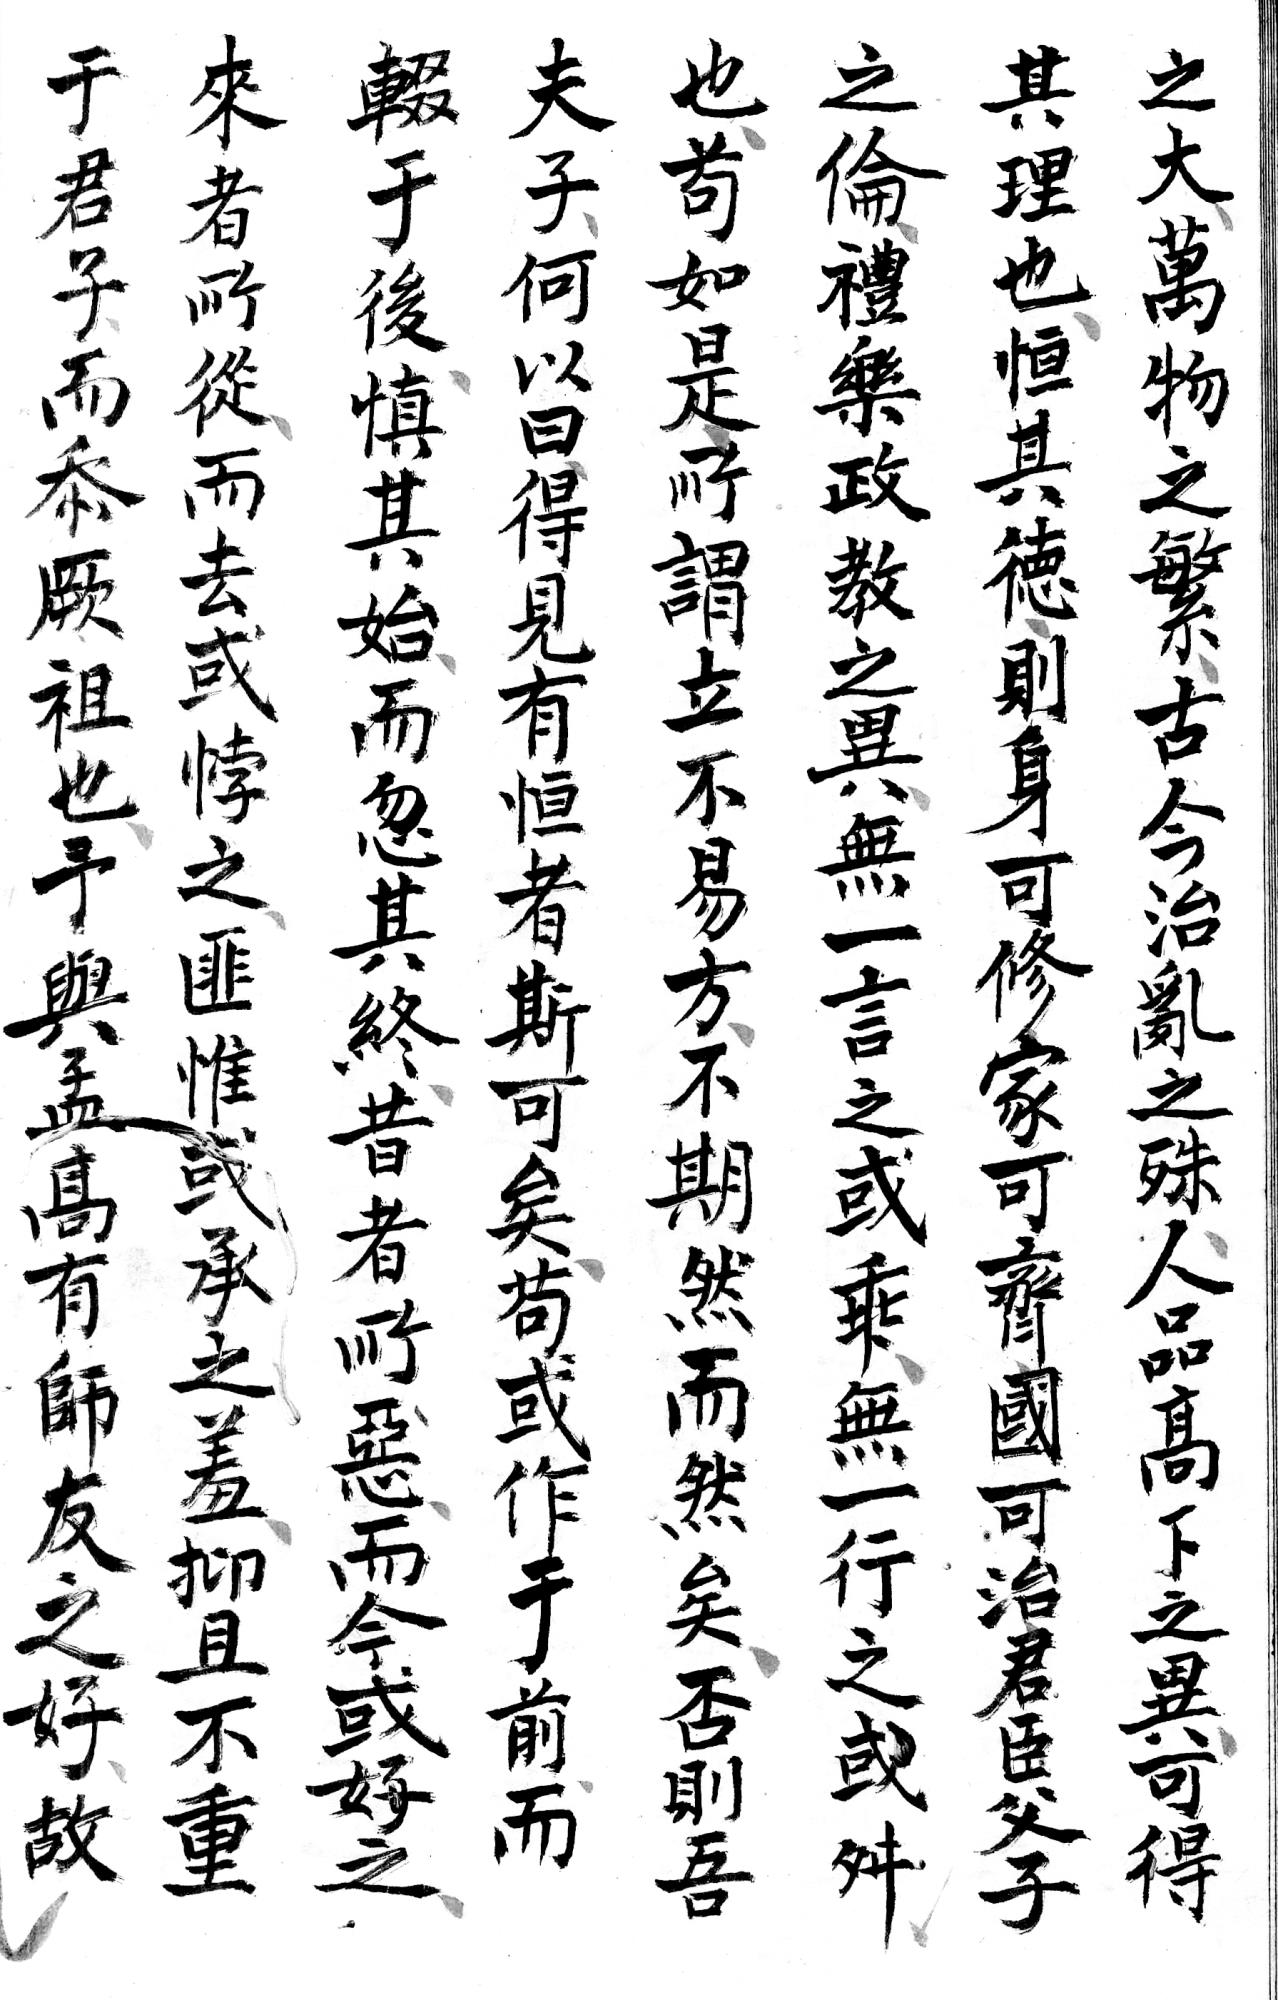 之大萬物之繁古今治亂之殊人品高下之異可得
其理也恒其德則身可修家可齊國可治君臣父子
之倫禮樂政教之異無一言之或乖無一行之或舛
也苟如是所謂立不易方不期然而然矣否則吾
夫子何以曰得見有恒者斯可矣苟或作于前而
輟于後慎其始而忽其終昔者所惡而今或好之
來者所從而去或悖之匪惟或承之羞抑且不重
于君子而忝厥祖也予與孟高有師友之好故